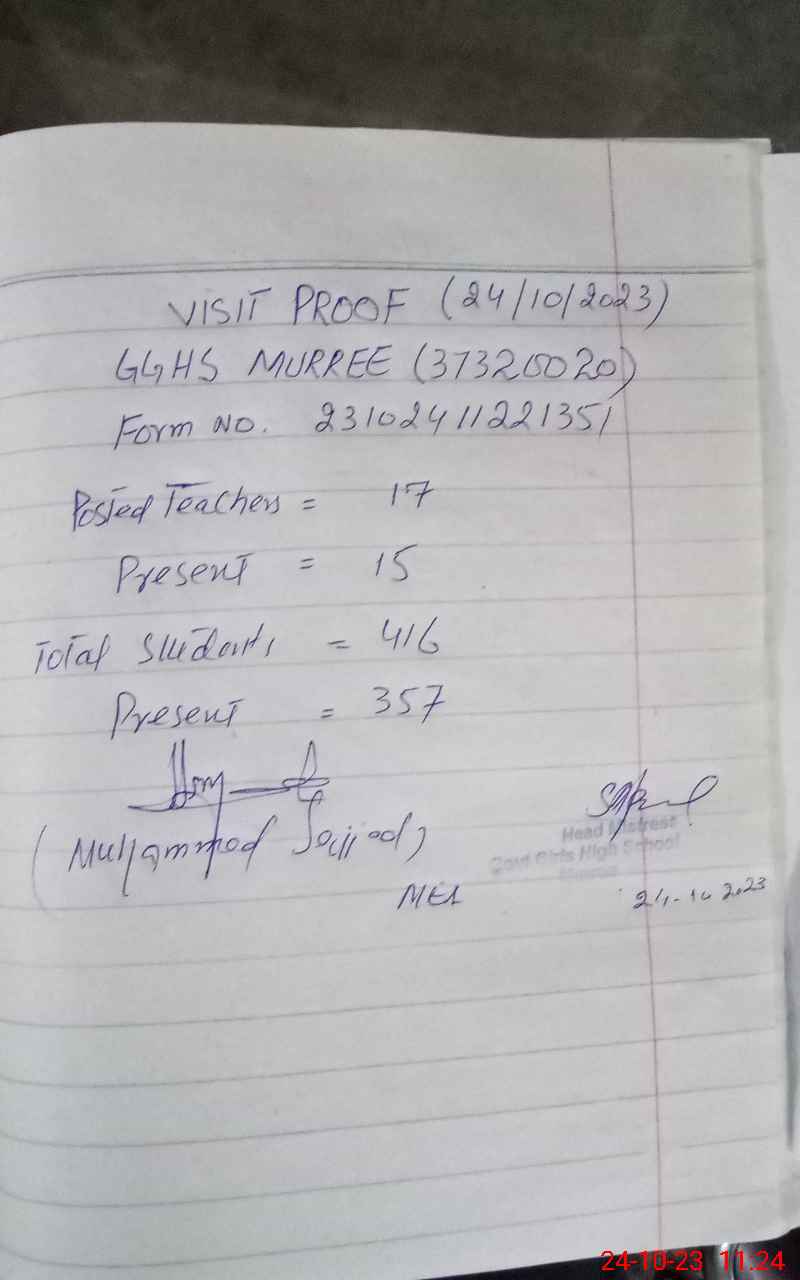 VISIT PROOF (24/10/2023)
GGHS MURREE (37320020)
Form NO. 23102411221351
Posted Teachers = 17
Present = 15
Total Students = 416
Present = 357
(Muhammad Sajjad)
Head Mistress
Govt Girls High School
Murree
MEA
24-10-2023
24-10-23 11:24